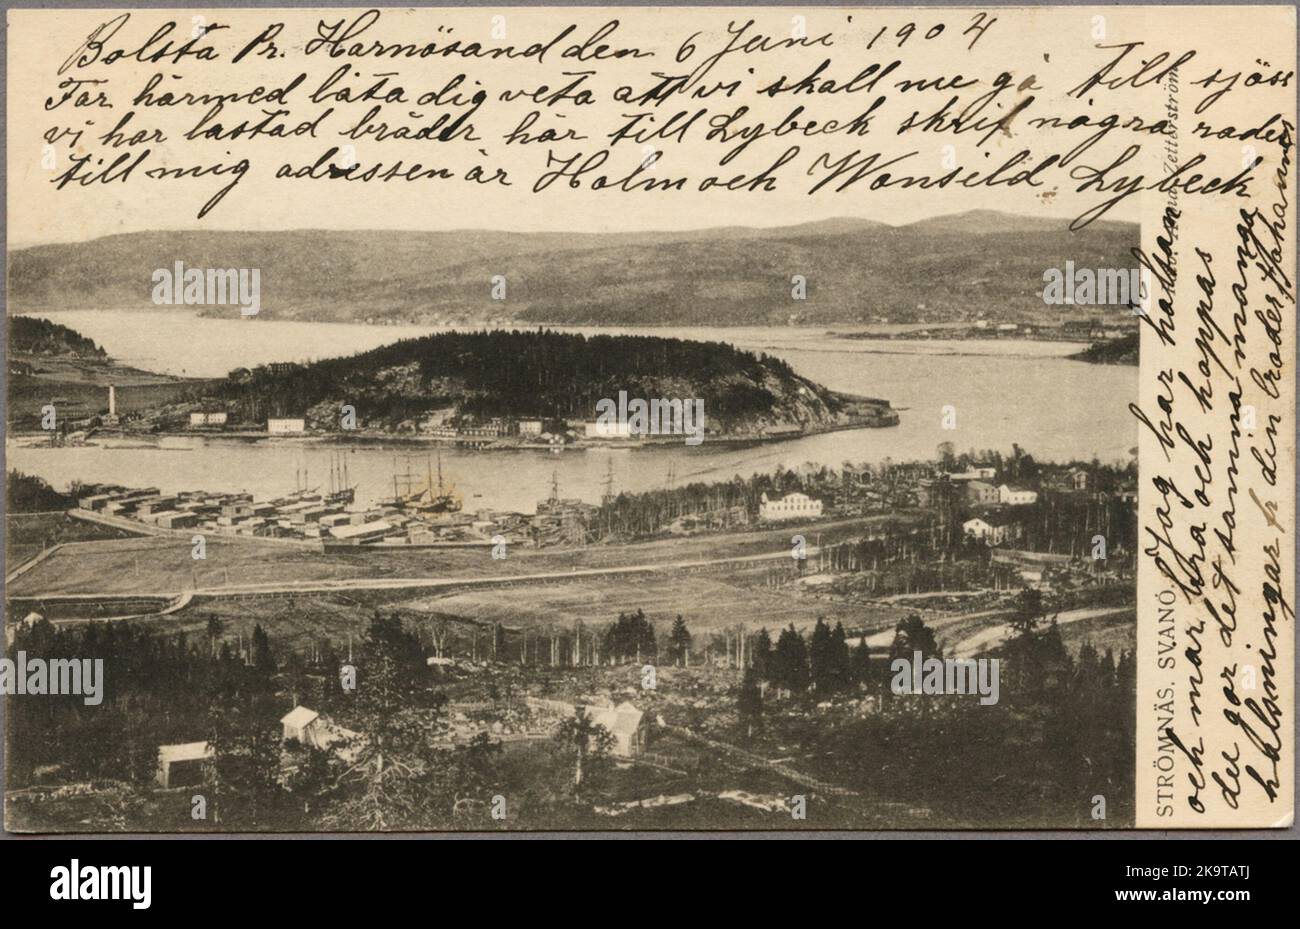 Bolsta Pr. Harnösand den 6 Juni 1904
Får härmed låta dig veta att vi skall nu gå till sjöss
vi har lastad bräder här till Lybeck skrif några rader
till mig adressen är Holm och Wonsild Lybeck
Jag har hälsan
och mar bra och hoppas
du gör det samma många
hälsningar fr din broder Johannes
STRÖMNÄS. SVANÖ.
Zetterström
alamy
Image ID: 2K9TATJ
www.alamy.com